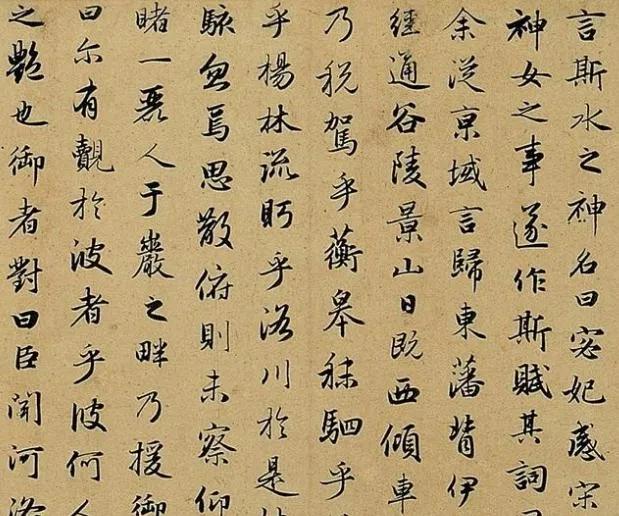 言斯水之神名曰宓妃感宋
神女之事遂作斯賦其詞
余從京域言歸東藩背伊
經通谷陵景山日既西傾車
乃稅駕乎蘅皋秣駟乎
乎楊林流眄乎洛川於是
駭忽焉思散俯則未察仰
睹一麗人于巖之畔乃援御
曰尔有覿於彼者乎彼何人
之艷也御者對曰臣聞河洛